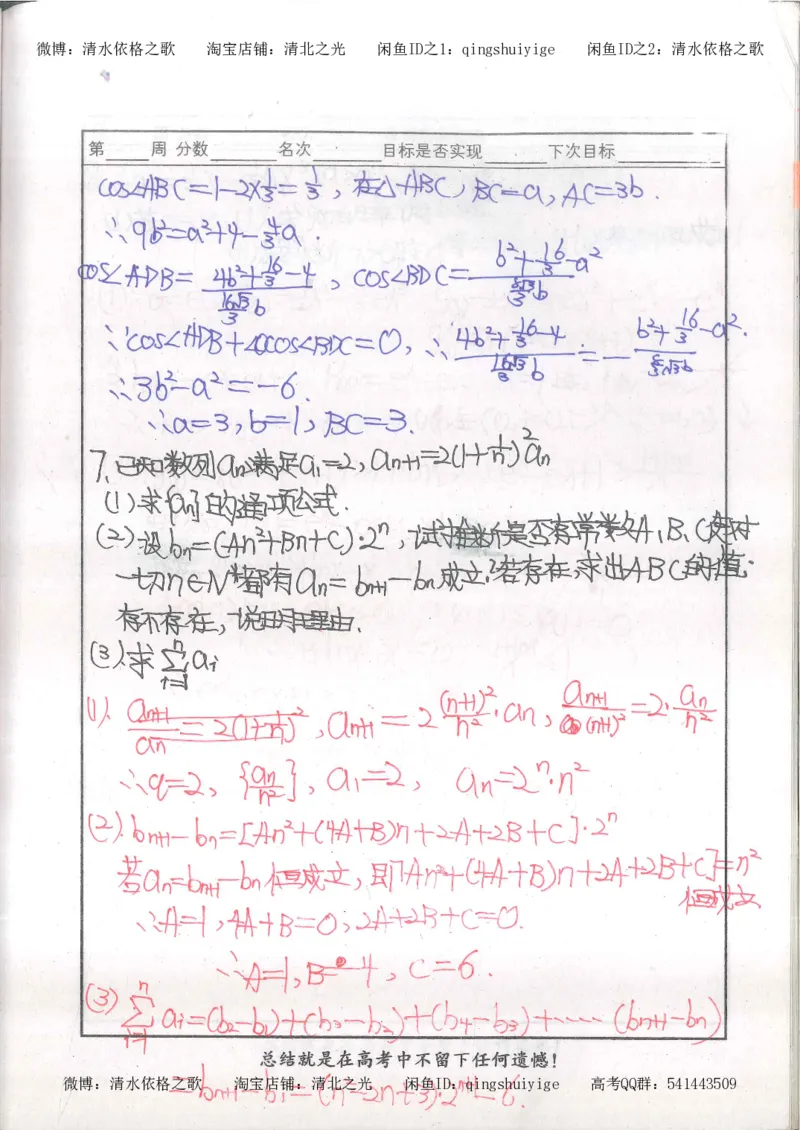 微博：清水依格之歌 淘宝店铺：清北之光 闲鱼ID之1：qingshuiyige 闲鱼ID之2：清水依格之歌
第 周 分数 名次 目标是否实现 下次目标
cos∠ABC=1-2×1/3=1/3, 在△ABC, BC=a, AC=3b.
∴9b²=a²+4-4/3a.
cos∠ADB=(4b²+16/3-4)/(16√3/3 b), cos∠BDC=(b²+16/3-a²)/(8√3/3 b)
∵cos∠ADB+cos∠BDC=0, ∴(4b²+16/3-4)/(16√3/3 b)=-(b²+16/3-a²)/(8√3/3 b).
∴3b²-a²=-6.
∴a=3, b=1, BC=3.
7. 已知数列an满足a₁=2, aₙ₊₁=2(1+1/n)²aₙ
(1)求{an}的通项公式.
(2)设bn=(An²+Bn+C)·2ⁿ, 试推断是否存常数A,B,C使对
一切n∈N*都有an=bn+1-bn成立?若存在,求出ABC的值;
存不存在, 说明理由.
(3).求∑ⁿᵢ₌₁ aᵢ
(1). aₙ₊₁/aₙ=2(1+1/n)², aₙ₊₁=2(n+1)²/n²·an, aₙ₊₁/(n+1)²=2·an/n²
∴q=2, {an/n²}, a₁=2, an=2ⁿ·n²
(2). bn+1-bn=[An²+(4A+B)n+2A+2B+C]·2ⁿ
若an=bn+1-bn恒成立, 则[An²+(4A+B)n+2A+2B+C]=n²
恒成立
∴A=1, 4A+B=0, 2A+2B+C=0.
∴A=1, B=-4, C=6.
(3) ∑ⁿᵢ₌₁ aᵢ=(b₂-b₁)+(b₃-b₂)+(b₄-b₃)+…… (bn+1-bn)
总结就是在高考中不留下任何遗憾！
微博：清水依格之歌 淘宝店铺：清北之光 闲鱼ID：qingshuiyige 高考QQ群：541443509
=bn+1-b₁=(n²-2n+3)·2ⁿ⁺¹-6.